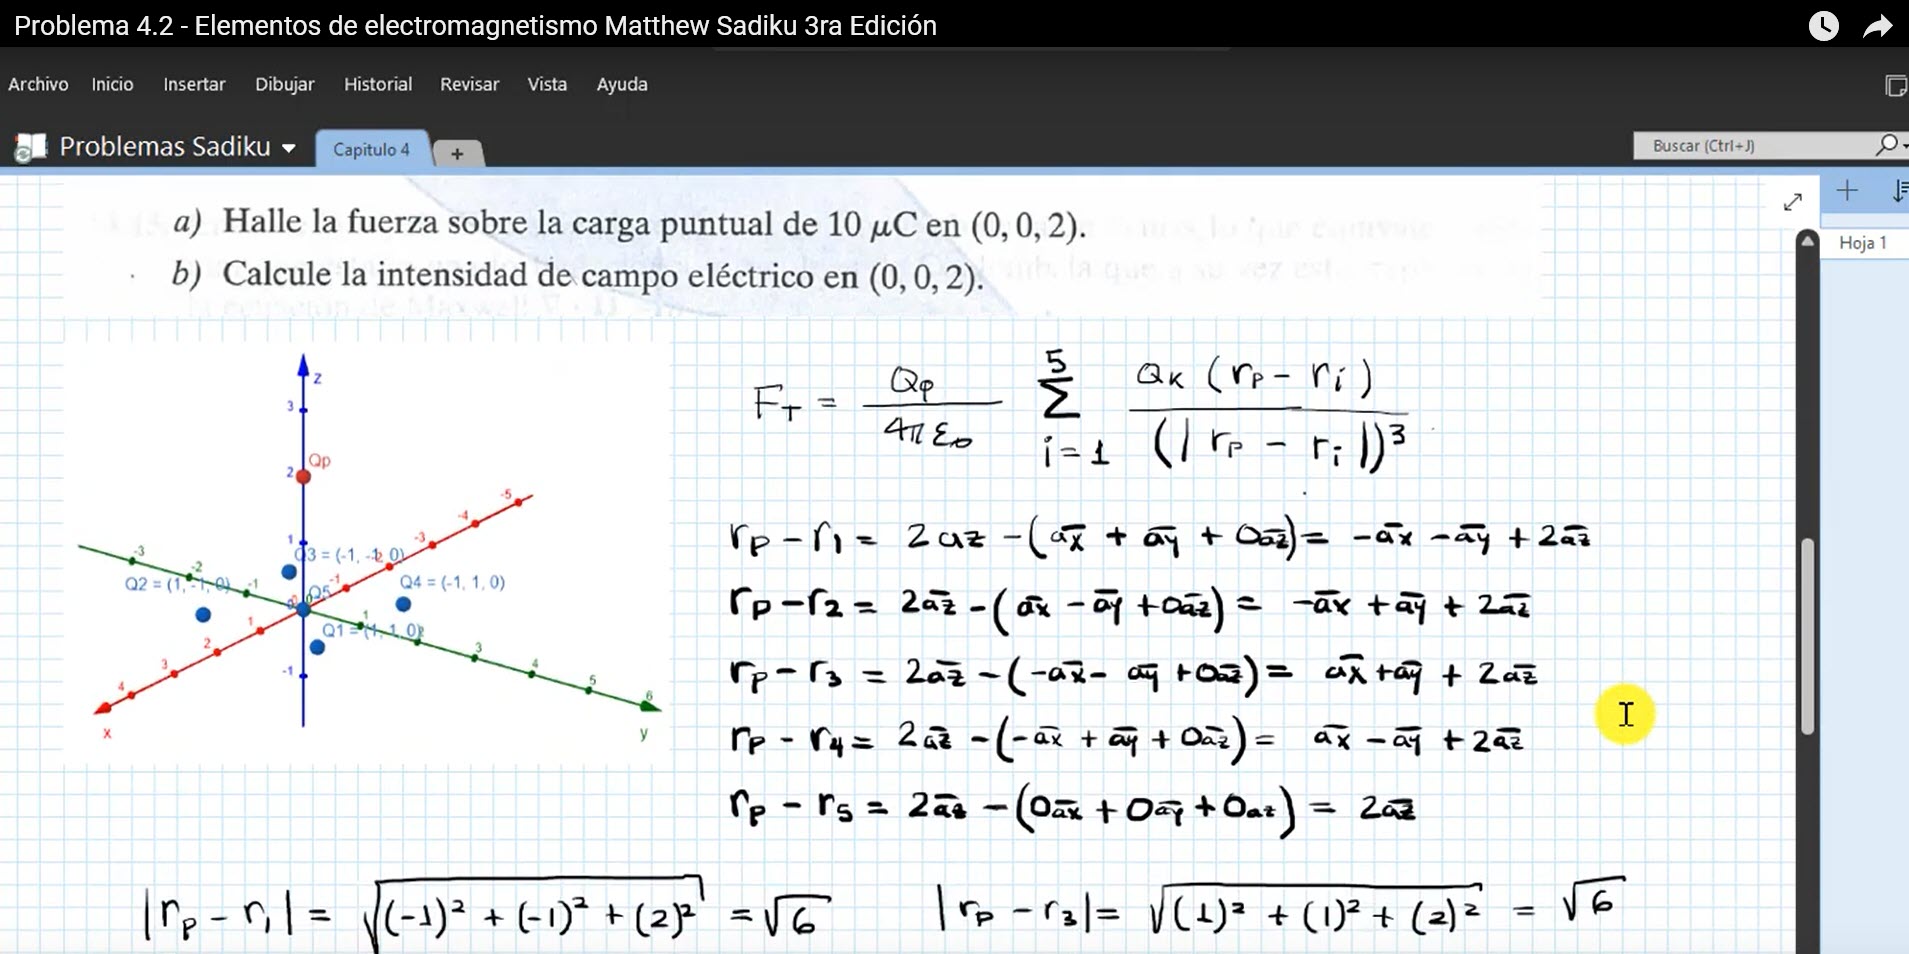 Problema 4.2 - Elementos de electromagnetismo Matthew Sadiku 3ra Edición
Archivo Inicio Insertar Dibujar Historial Revisar Vista Ayuda
Problemas Sadiku Capitulo 4 + Buscar (Ctrl+J)
a) Halle la fuerza sobre la carga puntual de 10 μC en (0, 0, 2).
b) Calcule la intensidad de campo eléctrico en (0, 0, 2).
Hoja 1
z
3
2 Qp
1
-1
-5
-4
-3
-2
-1
1
2
3
4
x
-3
-2
-1
1
2
3
4
5
6
y
Q3 = (-1, -1, 0)
Q2 = (1, -1, 0)
Q5
Q4 = (-1, 1, 0)
Q1 = (1, 1, 0)
F_T = Qp / 4π ε₀ Σ_{i=1}^{5} Q_K (r_p - r_i) / (| r_p - r_i |)³
r_p - r_1 = 2 az - (a̅x + a̅y + 0a̅z) = -a̅x - a̅y + 2a̅z
r_p - r_2 = 2a̅z - (a̅x - a̅y + 0a̅z) = -a̅x + a̅y + 2a̅z
r_p - r_3 = 2a̅z - (-a̅x - a̅y + 0a̅z) = a̅x + a̅y + 2a̅z
r_p - r_4 = 2a̅z - (-a̅x + a̅y + 0a̅z) = a̅x - a̅y + 2a̅z
r_p - r_5 = 2a̅z - (0a̅x + 0a̅y + 0az) = 2a̅z
|r_p - r_1| = √((-1)² + (-1)² + (2)²) = √6
|r_p - r_3| = √((1)² + (1)² + (2)²) = √6